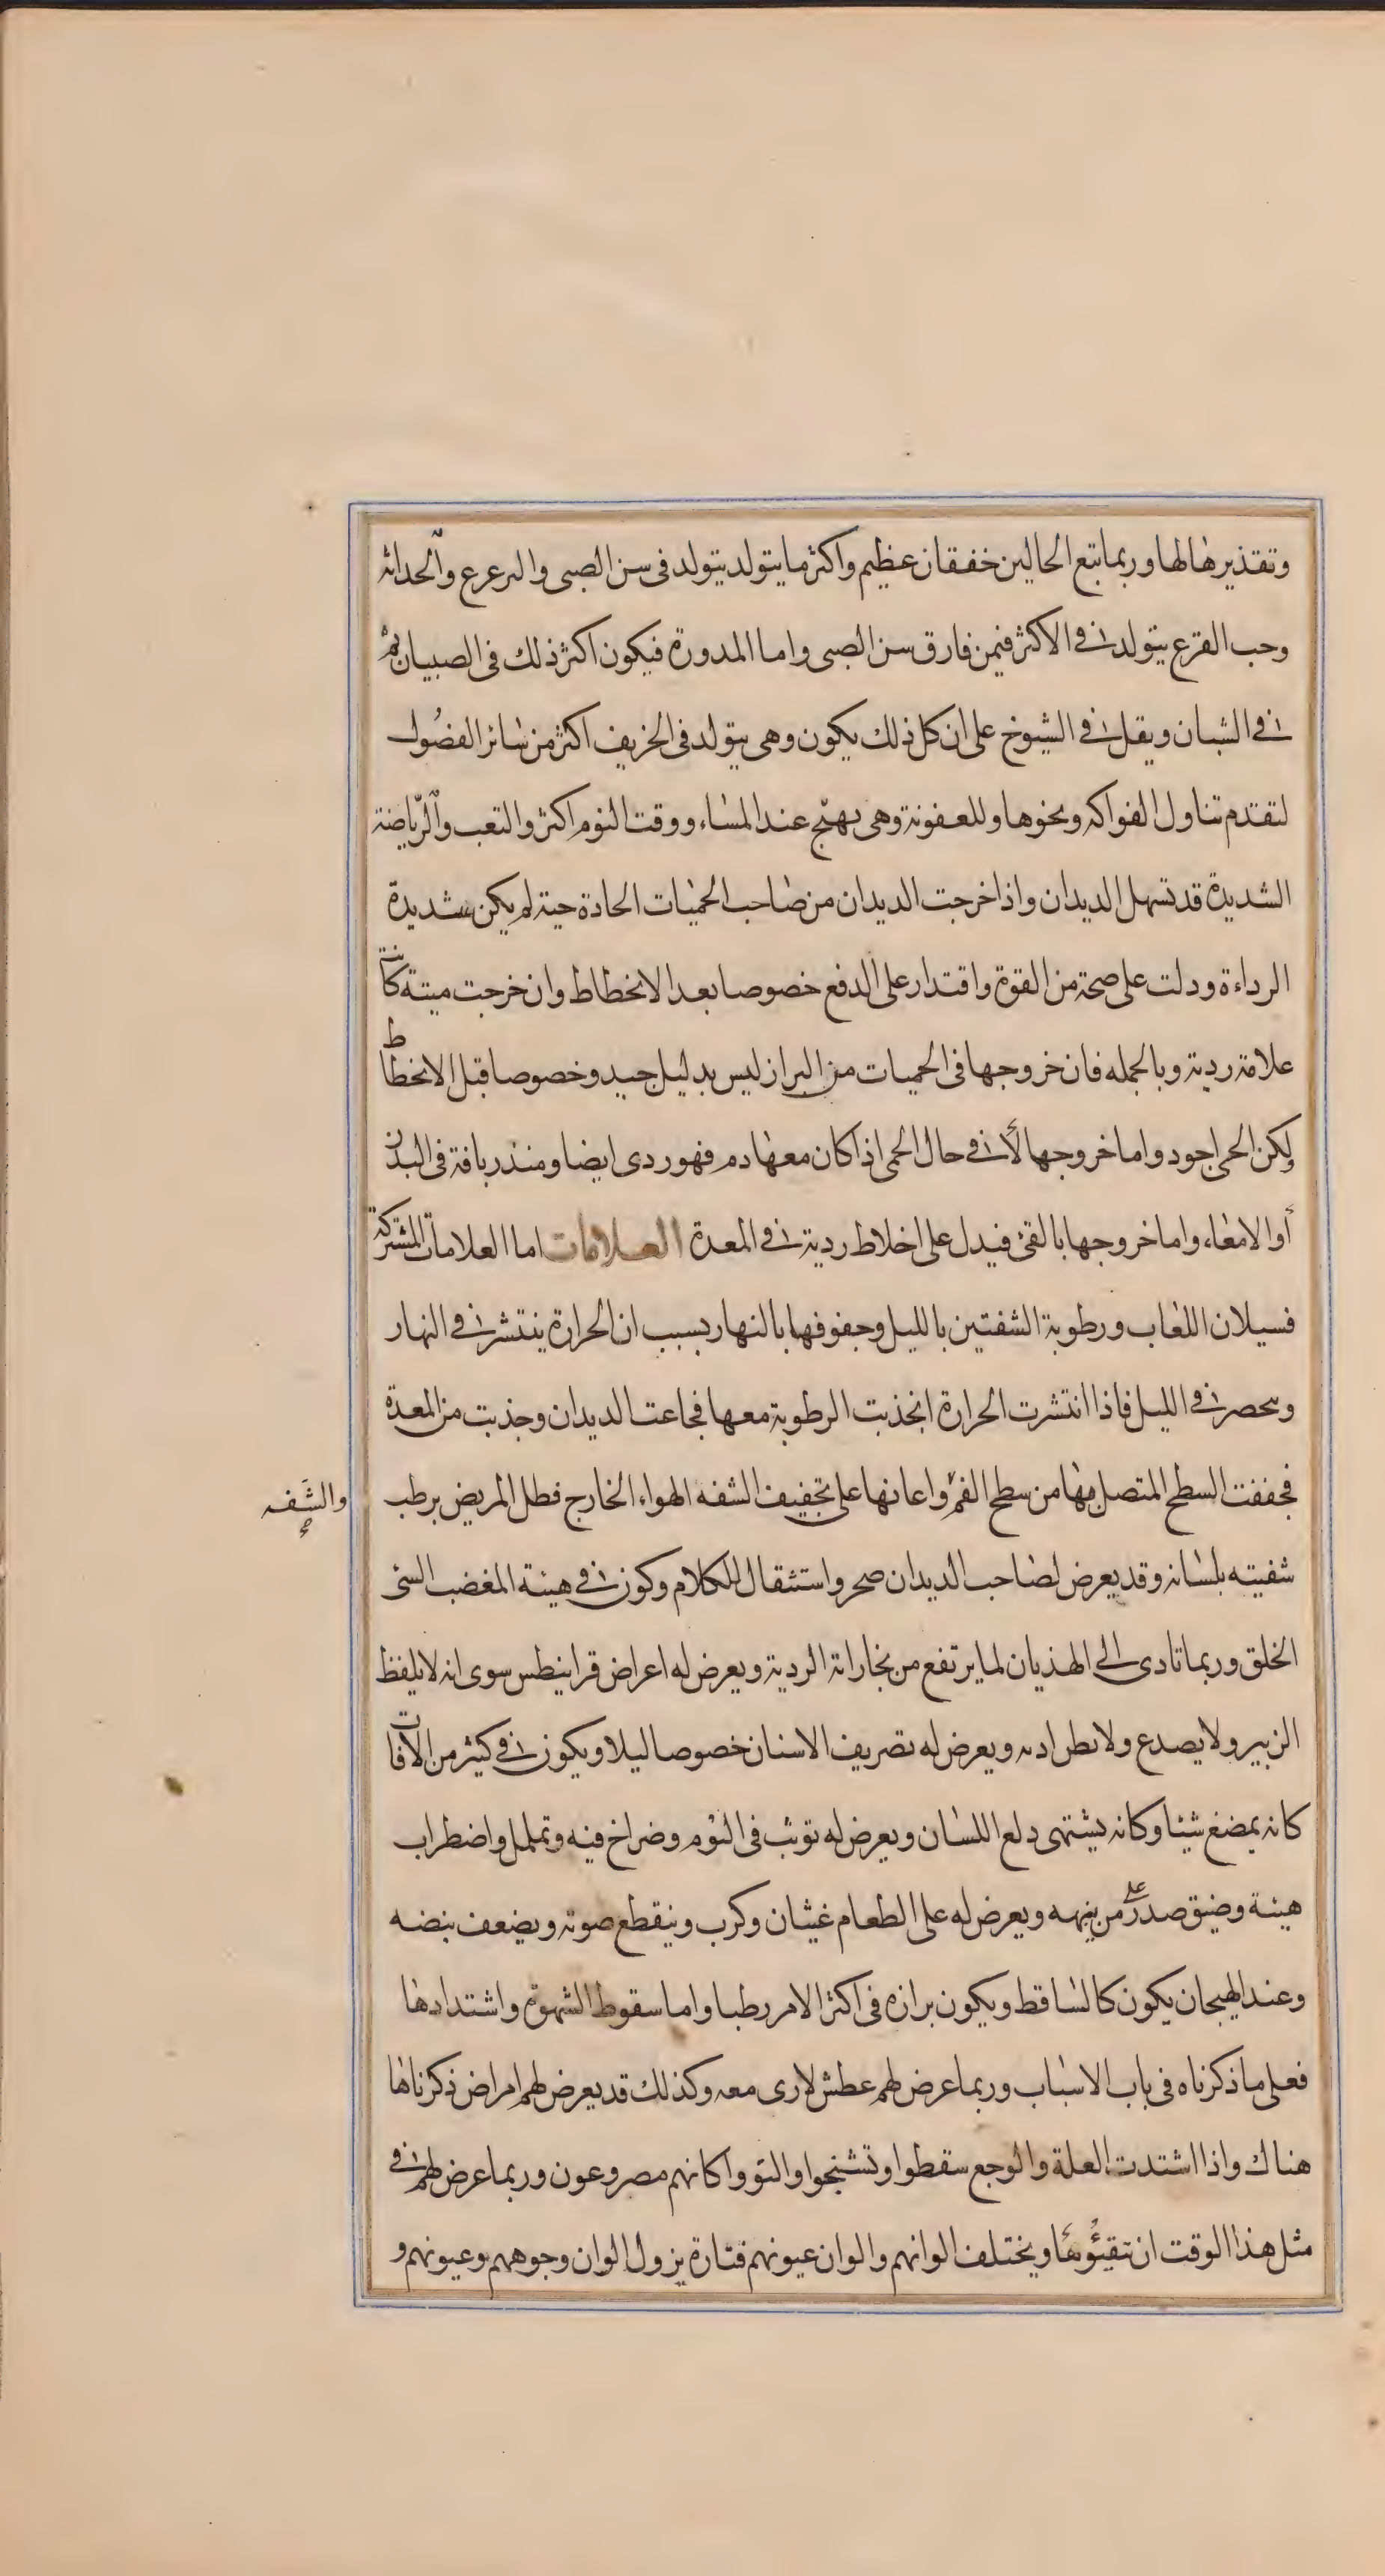 وتقذيرها لها وربما تبع الحالين خفقان عظيم واكثر ما يتولد يتولد فى سن الصبى والترعرع والحداثة
وحب القرع يتولد فى الاكثر فيمن فارق سن الصبى واما المدورة فيكون اكثر ذلك فى الصبيان ثم
فى الشبان ويقل فى الشيوخ على ان كل ذلك يكون وهى يتولد فى الخريف اكثر من سائر الفصول
لتقدم تناول الفواكه ونحوها وللعفونة وهى تهيج عند المساء ووقت النوم اكثر والتعب والرياضة
الشديدة قد تسهل الديدان واذا خرجت الديدان من صاحب الحميات الحادة حية لم يكن شديدة
الرداءة ودلت على صحة من القوة واقتدار على الدفع خصوصا بعد الانحطاط وان خرجت ميتة كانت
علامة ردية وبالجمله فان خروجها فى الحميات من البراز ليس بدليل جيد وخصوصا قبل الانحطاط
لكن الحى اجود واما خروجها لا فى حال الحمى اذا كان معها دم فهو ردى ايضا ومنذر بافة فى البدن
أو الامعاء، واما خروجها بالقئ فيدل على اخلاط ردية فى المعدة العلامات اما العلامات المشتركة
فسيلان اللعاب ورطوبة الشفتين بالليل وجفوفها بالنهار بسبب ان الحرارة ينتشر فى النهار
وىحصر فى الليل فاذا انتشرت الحرارة انجذبت الرطوبة معها فجاعت الديدان وجذبت من المعدة
فجففت السطح المتصل بها من سطح الفم واعانها على تجفيف الشفه الهواء الخارج فظل المريض يرطب
والشفه صح
شفيته بلسانه وقد يعرض لصاحب الديدان ضجر واستثقال للكلام وكون فى هيئة المغضب السئ
الخلق وربما تادى الى الهذيان لما يرتفع من بخاراته الردية ويعرض له اعراض قرانيطس سوى انه لا يلقط
الزبير ولا يصدع ولا يطن اذنه ويعرض له تصريف الاسنان خصوصا ليلا ويكون فى كثير من الاقات
كانه يمضغ شيئا وكانه يشتهى دلع اللسان ويعرض له توثب فى النوم وصراخ فيه وتململ واضطراب
هيئة وضيق صدر على من ينبهه ويعرض له على الطعام غثيان وكرب وينقطع صوته ويضعف نبضه
وعند الهيجان يكون كالساقط ويكون برازه فى اكثر الامر رطبا واما سقوط الشهوة واشتدادها
فعلى ما ذكرناه فى باب الاسباب وربما عرض لهم عطش لارى معه وكذلك قد يعرض لهم امراض ذكرناها
هناك واذا اشتدت العلة والوجع سقطوا وتشنجوا والتووا كانهم مصروعون وربما عرض لهم فى
مثل هذا الوقت ان تتقيؤها ويختلف الوانهم والوان عيونهم فتارة يزول الوان وجوههم وعيونهم و